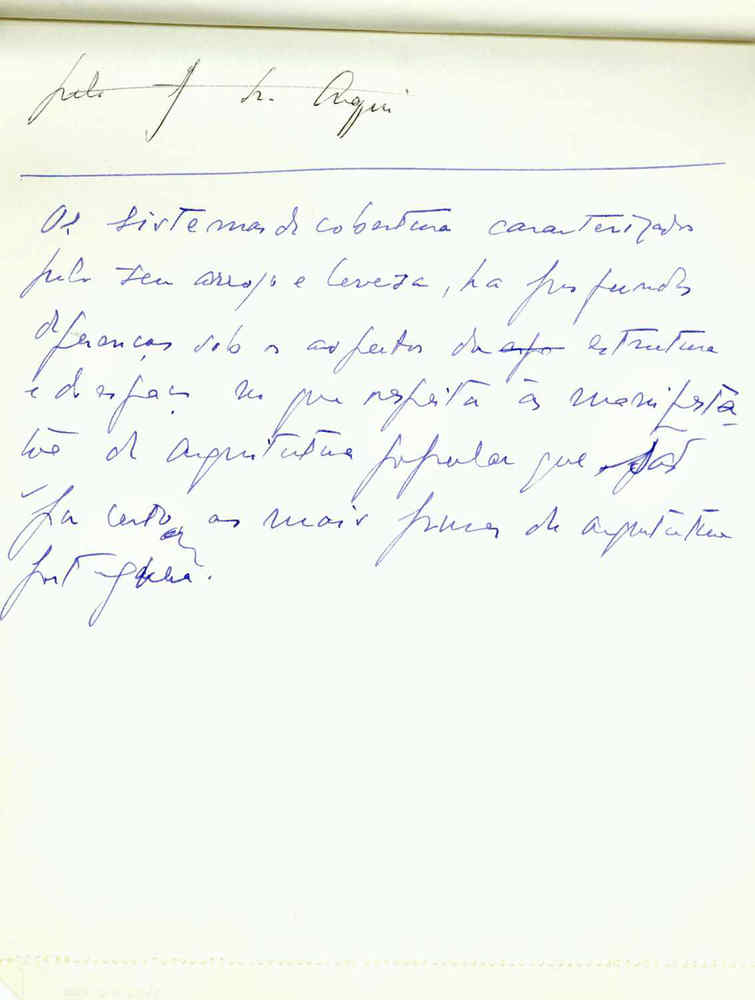 pelo Sr. Arqui
Os sistemas de cobertura caracterizados
pelo seu arrojo e leveza, ha profundas
diferenças sob os aspectos da estrutura
e de espaço no que respeita às manifesta-
ções de arquitetura popular que são
por certo as mais puras da arquitetura
portuguesa.